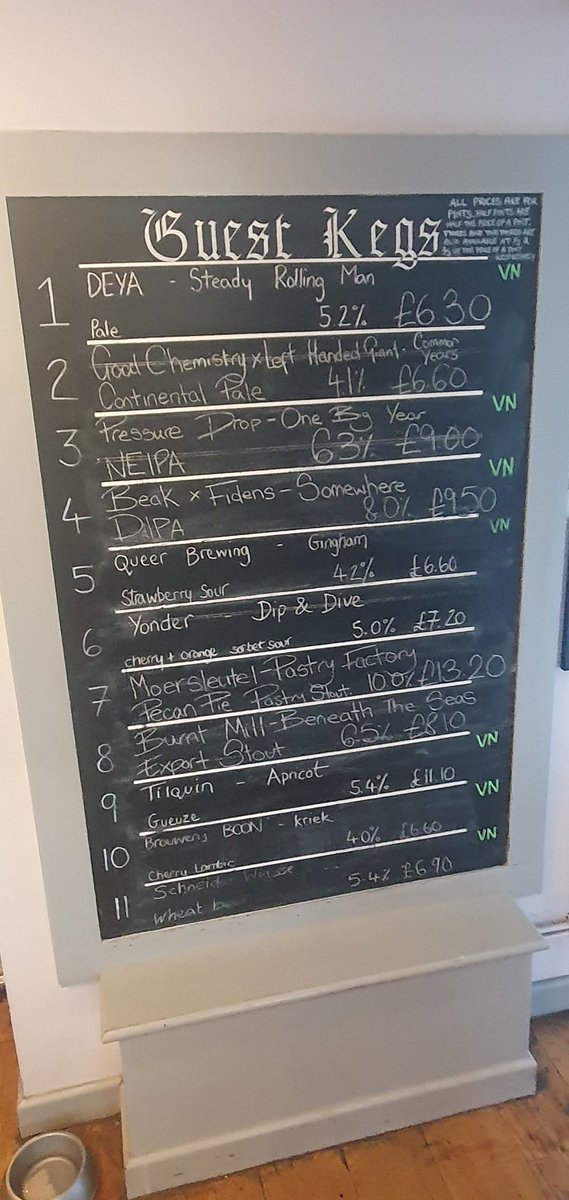 Guest Kegs
ALL PRICES ARE FOR
PINTS. HALF PINTS ARE
HALF THE PRICE OF A PINT.
THIRDS AND TWO THIRDS ARE
ALSO AVAILABLE AT ⅓ &
⅔ OF THE PRICE OF A PINT
RESPECTIVELY
1 DEYA - Steady Rolling Man VN
Pale 5.2% £6.30
2 Good Chemistry x Left Handed Giant - Common Years
Continental Pale 4.1% £6.60
3 Pressure Drop - One Big Year VN
NEIPA 6.3% £9.00
4 Beak x Fidens - Somewhere VN
DIPA 8.0% £9.50
5 Queer Brewing - Gingham VN
Strawberry Sour 4.2% £6.60
6 Yonder - Dip & Dive
cherry + orange sorbet sour 5.0% £7.20
7 Moersleutel - Pastry Factory
Pecan Pie Pastry Stout 10.0% £13.20
8 Burnt Mill - Beneath The Seas
Export Stout 6.5% £8.10
9 Tilquin - Apricot VN
Gueuze 5.4% £11.10
10 Brouwerij BOON - Kriek VN
Cherry Lambic 4.0% £6.60
11 Weisse VN
Wheat 5.4% £6.90